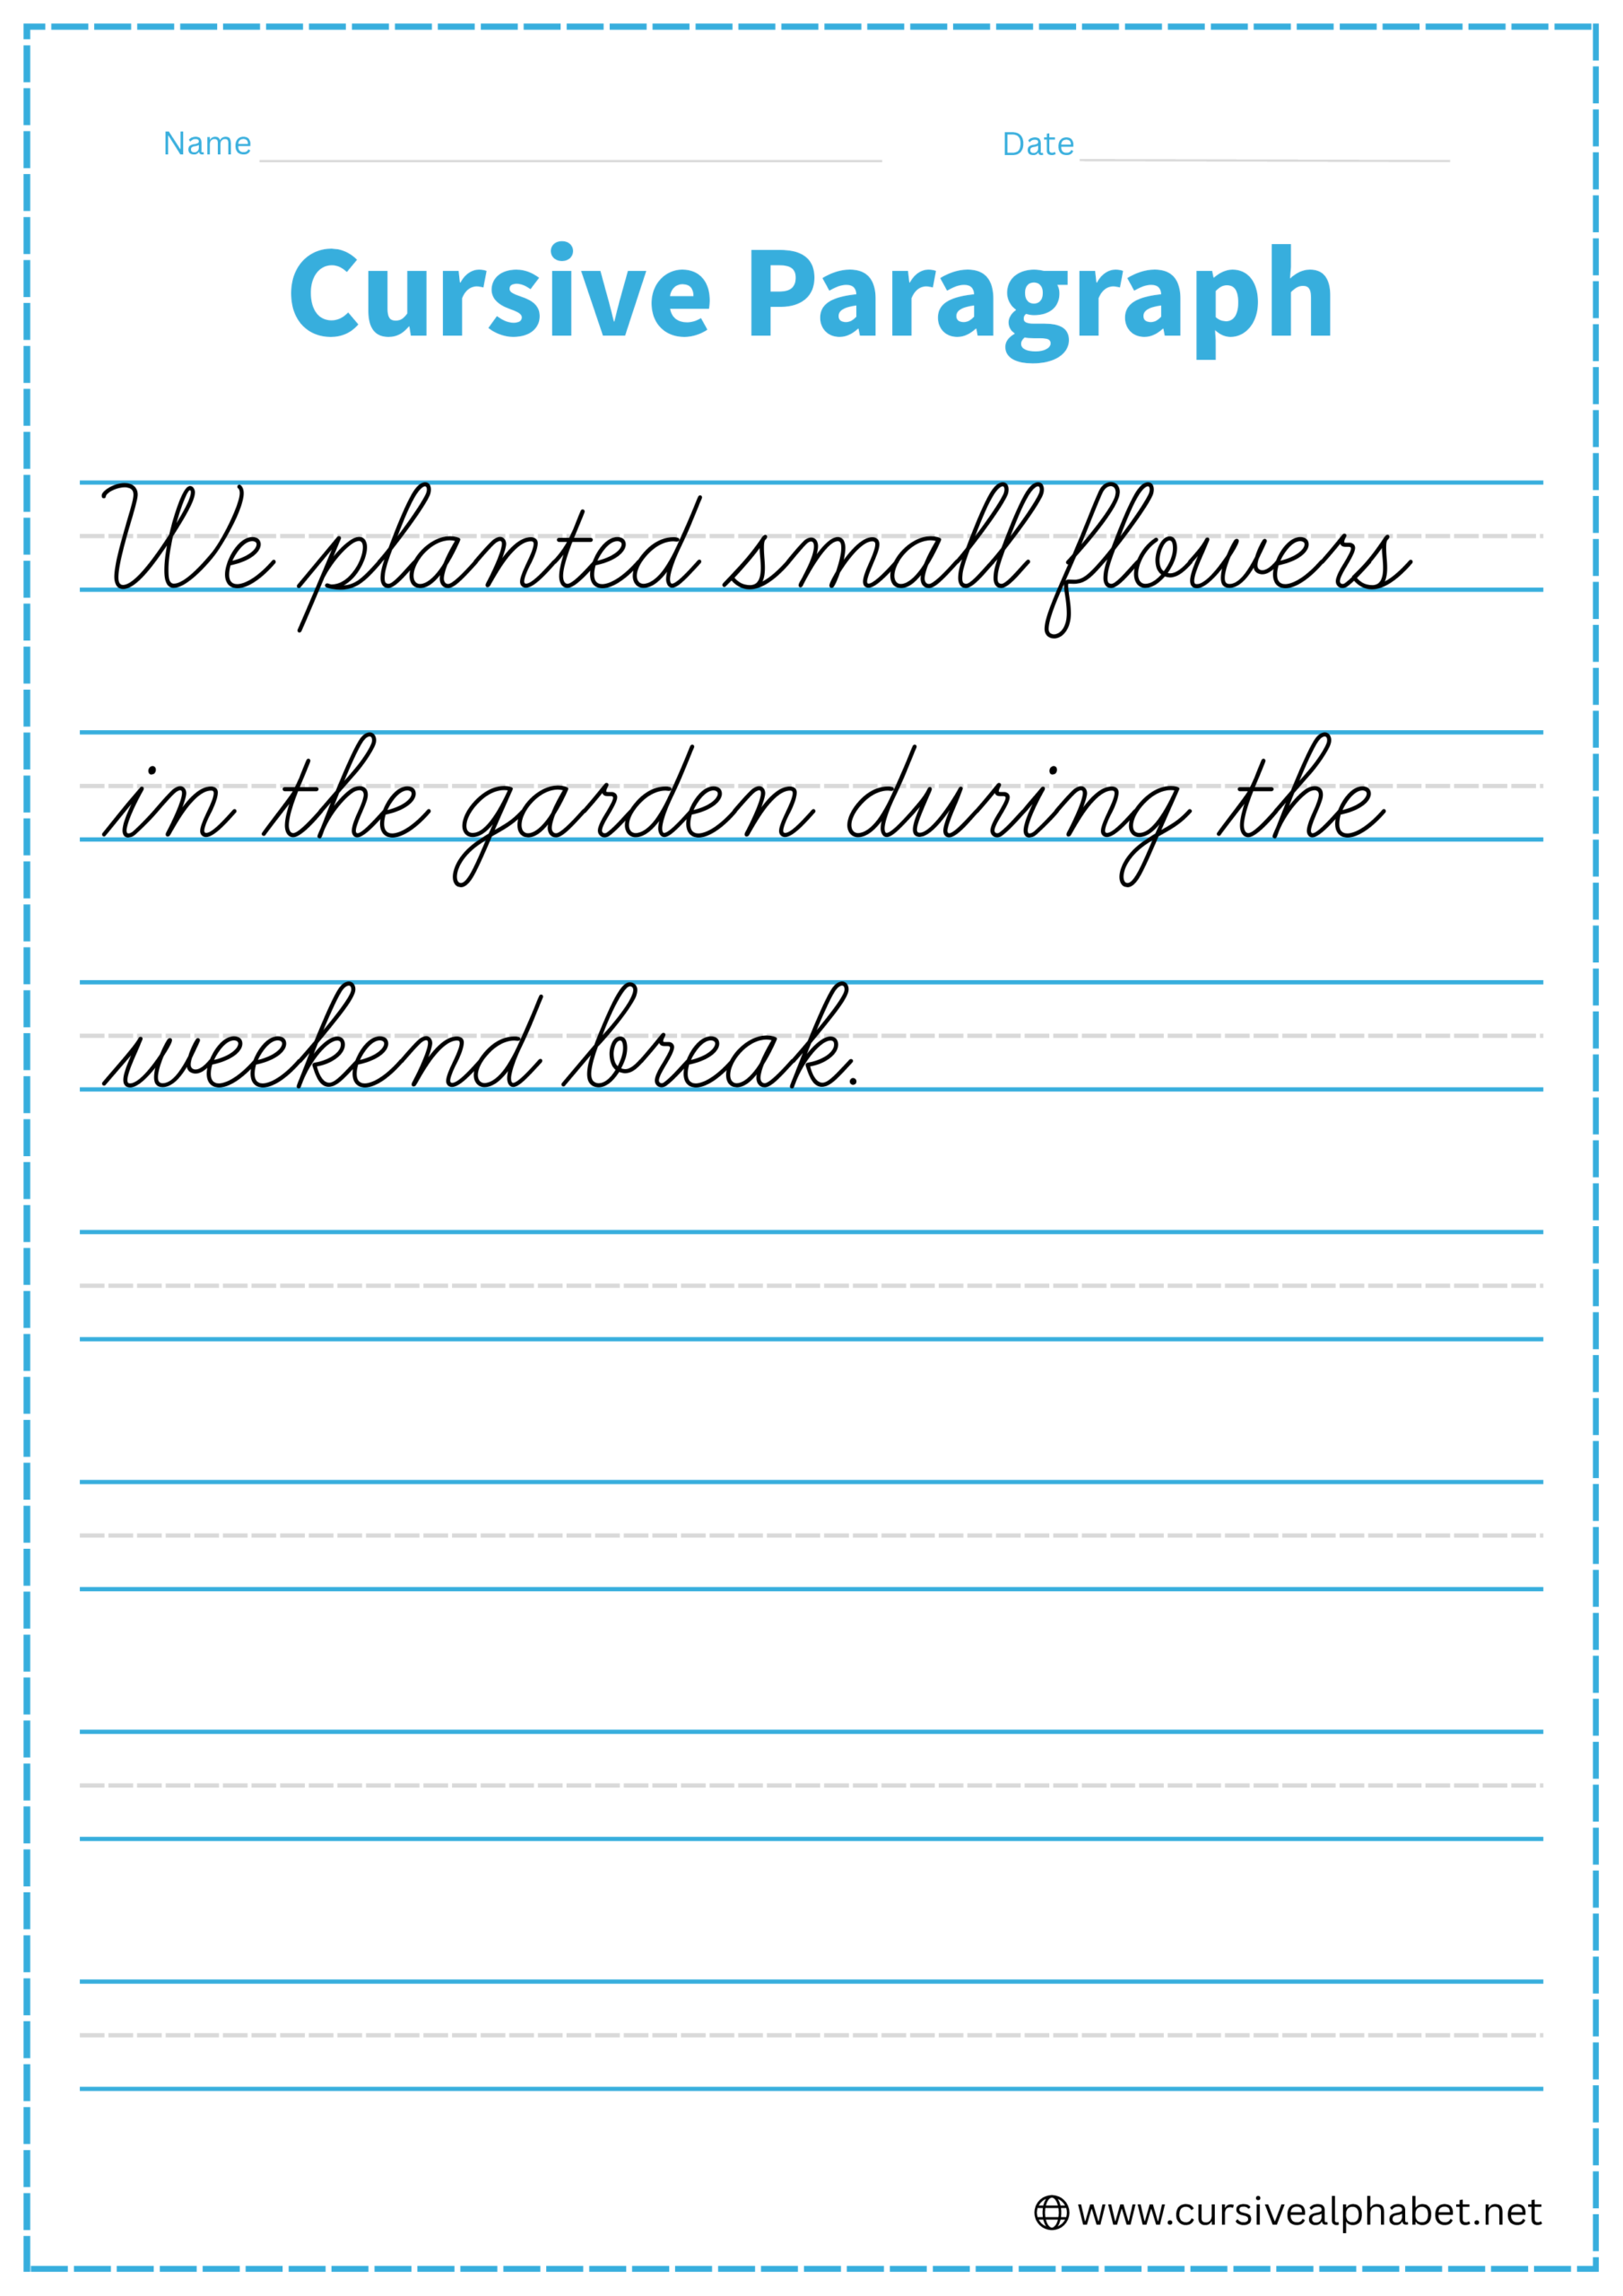 Name Date
Cursive Paragraph
We planted small flowers
in the garden during the
weekend break.
www.cursivealphabet.net